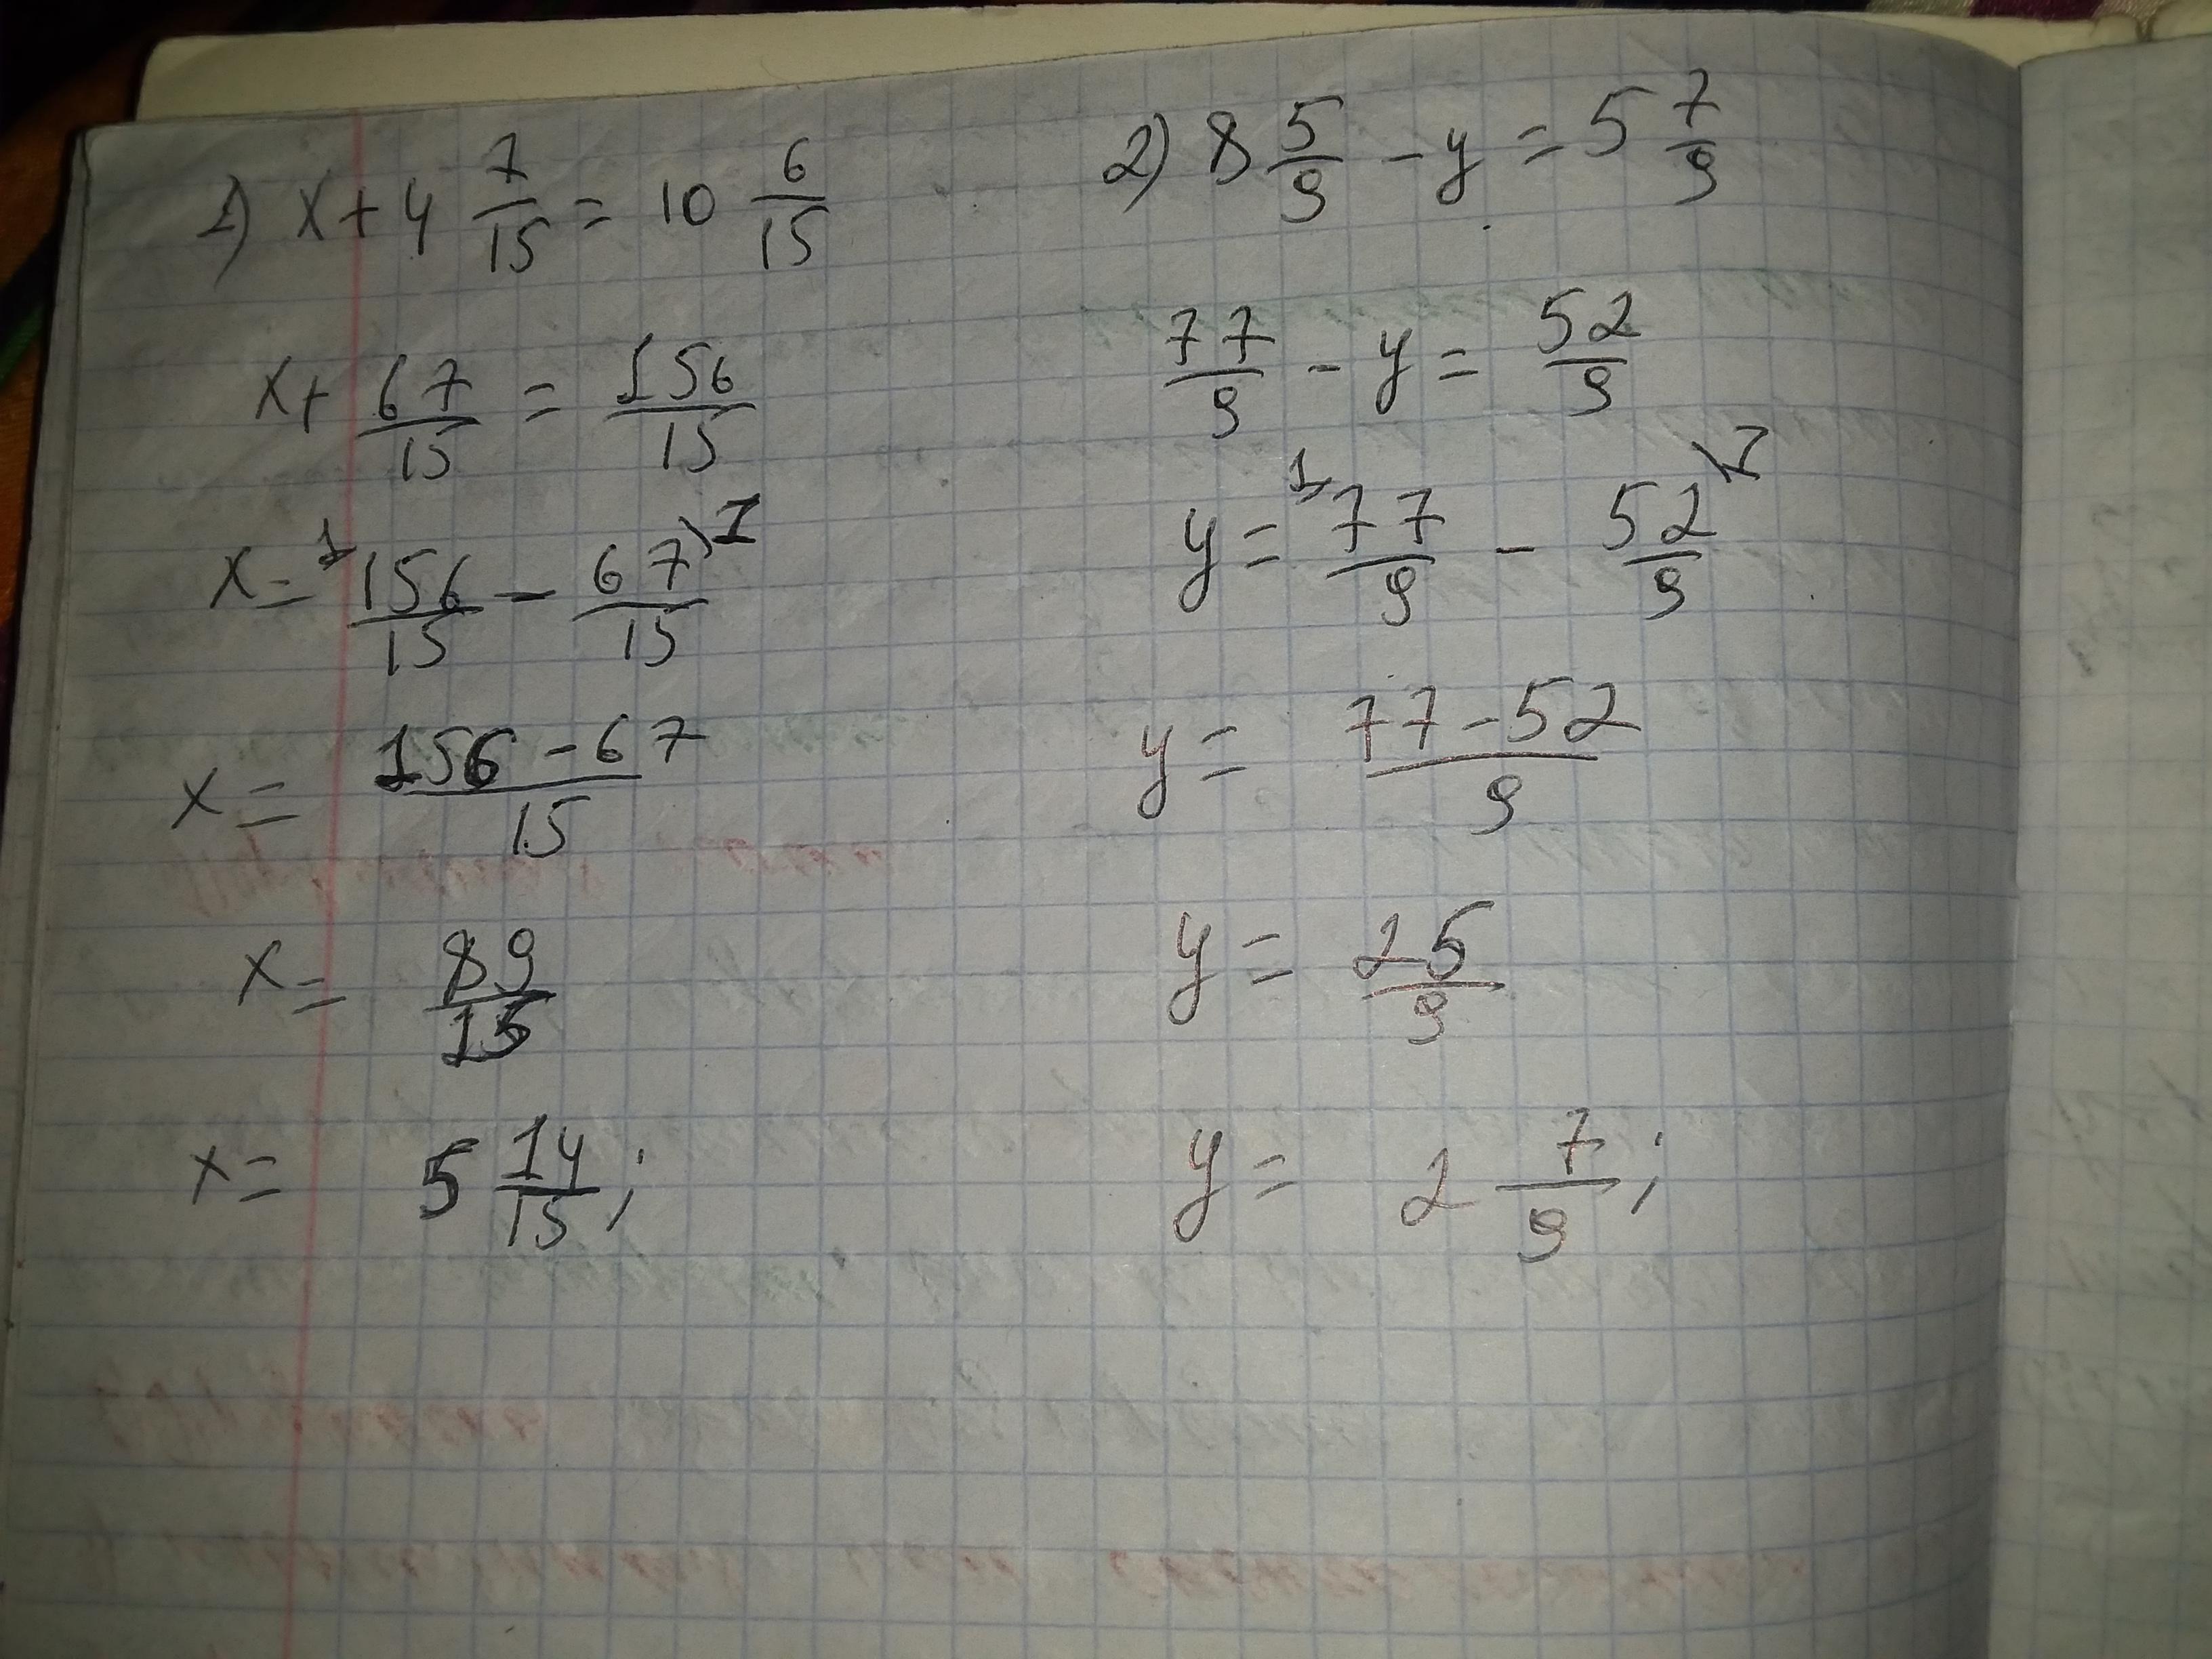 1) x + 4 7/15 = 10 6/15
x + 67/15 = 156/15
x = 1/ 156/15 - 67/15 \1
x = (156 - 67)/15
x = 89/15
x = 5 14/15 ;
2) 8 5/9 - y = 5 7/9
77/9 - y = 52/9
y = 1/ 77/9 - 52/9 \1
y = (77 - 52)/9
y = 25/9
y = 2 7/9 ;